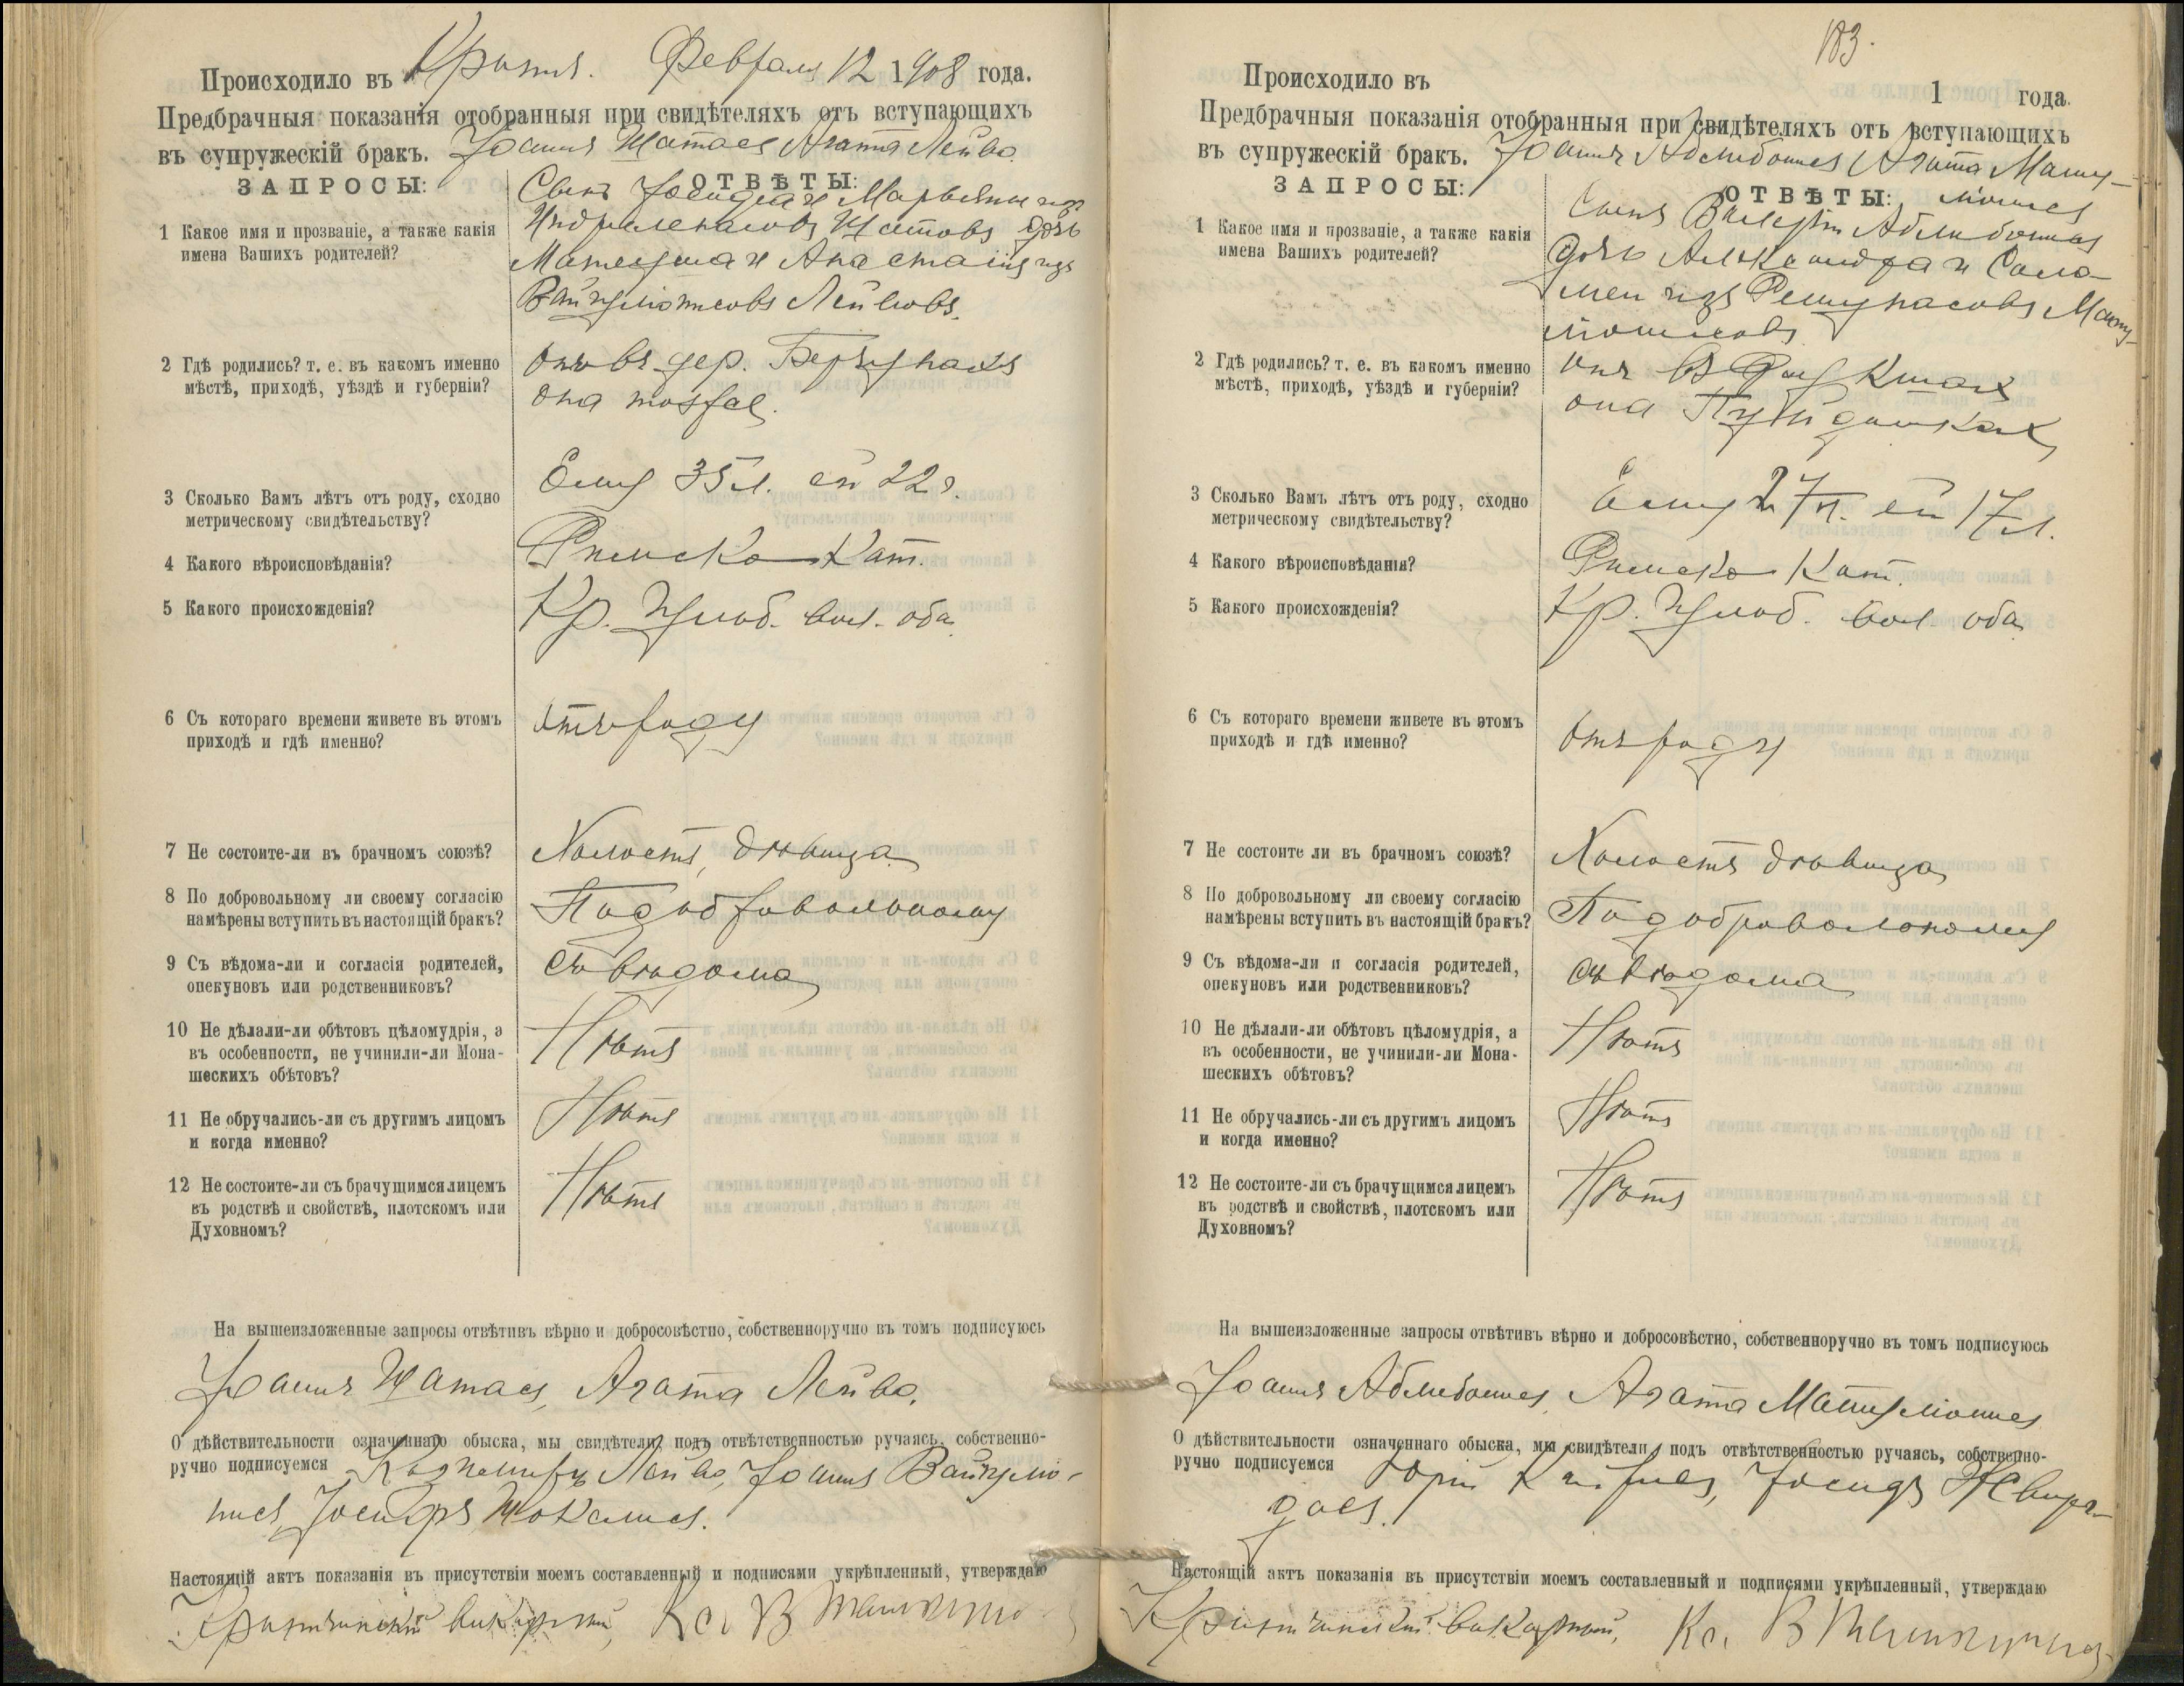 Происходило въ Февраля 12 1908 года.
Предбрачныя показанія отобранныя при свидѣтеляхъ отъ вступающихъ
въ супружескій бракъ. Іоаннъ Агата Лейво
ЗАПРОСЫ: ОТВѢТЫ:
1 Какое имя и прозваніе, а также какія
имена Вашихъ родителей?
Сынъ Іосифа и Марьяны изъ
дочь
и Анастасіи изъ
2 Гдѣ родились? т. е. въ какомъ именно
мѣстѣ, приходѣ, уѣздѣ и губерніи?
Онъ въ дер.
Она тоже
3 Сколько Вамъ лѣтъ отъ роду, сходно
метрическому свидѣтельству?
Ему 35 л. ей 22 г.
4 Какого вѣроисповѣданія?
Римско-Кат.
5 Какого происхожденія?
Кр. вол. оба
6 Съ котораго времени живете въ этомъ
приходѣ и гдѣ именно?
Отъ роду
7 Не состоите-ли въ брачномъ союзѣ?
Холостъ, дѣвица
8 По добровольному ли своему согласію
намѣрены вступить въ настоящій бракъ?
По добровольному
9 Съ вѣдома-ли и согласія родителей,
опекуновъ или родственниковъ?
Съ вѣдома
10 Не дѣлали-ли обѣтовъ цѣломудрія, а
въ особенности, не учинили-ли Мона-
шескихъ обѣтовъ?
Нѣтъ
11 Не обручались-ли съ другимъ лицомъ
и когда именно?
Нѣтъ
12 Не состоите-ли съ брачущимся лицемъ
въ родствѣ и свойствѣ, плотскомъ или
Духовномъ?
Нѣтъ
На вышеизложенные запросы отвѣтивъ вѣрно и добросовѣстно, собственноручно въ томъ подписуюсь
Іоаннъ Агата Лейво.
О дѣйствительности означеннаго обыска, мы свидѣтели, подъ отвѣтственностью ручаясь, собственно-
ручно подписуемся Лейво, Іоаннъ
Іосифъ
Настоящій актъ показанія въ присутствіи моемъ составленный и подписями укрѣпленный, утверждаю
викарный, Кс. В
183.
Происходило въ 1 года.
Предбрачныя показанія отобранныя при свидѣтеляхъ отъ вступающихъ
въ супружескій бракъ. Іоаннъ Агата
ЗАПРОСЫ: ОТВѢТЫ:
1 Какое имя и прозваніе, а также какія
имена Вашихъ родителей?
Сынъ
дочь Александра и Сало-
меи изъ
2 Гдѣ родились? т. е. въ какомъ именно
мѣстѣ, приходѣ, уѣздѣ и губерніи?
Онъ въ
она
3 Сколько Вамъ лѣтъ отъ роду, сходно
метрическому свидѣтельству?
Ему 27 л. ей 17 л.
4 Какого вѣроисповѣданія?
Римско Кат.
5 Какого происхожденія?
Кр. вол. оба
6 Съ котораго времени живете въ этомъ
приходѣ и гдѣ именно?
Отъ роду
7 Не состоите ли въ брачномъ союзѣ?
Холостъ дѣвица
8 По добровольному ли своему согласію
намѣрены вступить въ настоящій бракъ?
По добровольному
9 Съ вѣдома-ли и согласія родителей,
опекуновъ или родственниковъ?
Съ вѣдома
10 Не дѣлали-ли обѣтовъ цѣломудрія, а
въ особенности, не учинили-ли Мона-
шескихъ обѣтовъ?
Нѣтъ
11 Не обручались-ли съ другимъ лицомъ
и когда именно?
Нѣтъ
12 Не состоите-ли съ брачущимся лицемъ
въ родствѣ и свойствѣ, плотскомъ или
Духовномъ?
Нѣтъ
На вышеизложенные запросы отвѣтивъ вѣрно и добросовѣстно, собственноручно въ томъ подписуюсь
Іоаннъ Агата
О дѣйствительности означеннаго обыска, мы свидѣтели, подъ отвѣтственностью ручаясь, собственно-
ручно подписуемся Юрій Іосифъ
Настоящій актъ показанія въ присутствіи моемъ составленный и подписями укрѣпленный, утверждаю
викарный, Кс. В